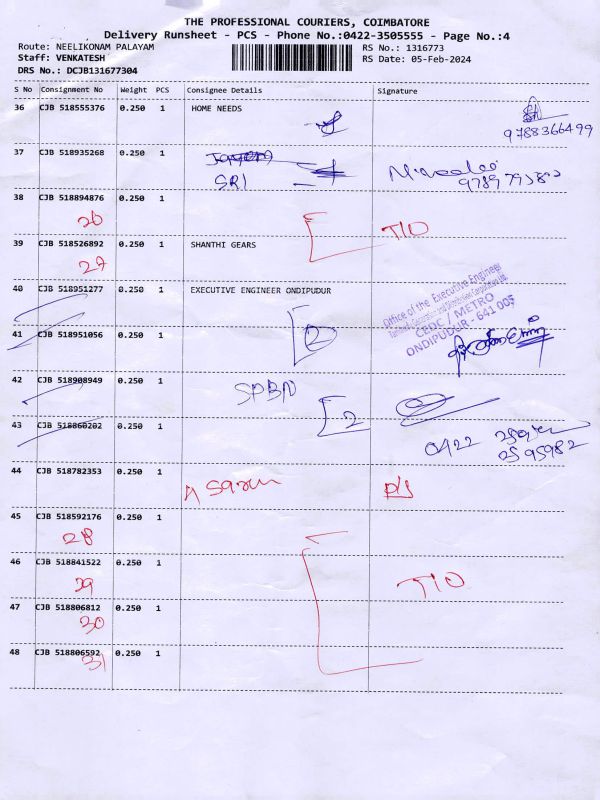 THE PROFESSIONAL COURIERS, COIMBATORE
Delivery Runsheet - PCS - Phone No.:0422-3505555 - Page No.:4
Route: NEELIKONAM PALAYAM
RS No.: 1316773
Staff: VENKATESH
RS Date: 05-Feb-2024
DRS No.: DCJB131677304
S No Consignment No Weight PCS Consignee Details Signature
36 CJB 518555376 0.250 1 HOME NEEDS
9788366499
37 CJB 518935268 0.250 1
SRI
38 CJB 518894876 0.250 1
26
TID
39 CJB 518526892 0.250 1 SHANTHI GEARS
27
40 CJB 518951277 0.250 1 EXECUTIVE ENGINEER ONDIPUDUR
Office of the Executive Engineer
CEDC / METRO
ONDIPUDUR - 641 005
2
41 CJB 518951056 0.250 1
42 CJB 518908949 0.250 1
SPBN
2
43 CJB 518860202 0.250 1
0422
2595982
44 CJB 518782353 0.250 1
Saran
45 CJB 518592176 0.250 1
28
46 CJB 518841522 0.250 1
29
TID
47 CJB 518806812 0.250 1
30
48 CJB 518806592 0.250 1
31